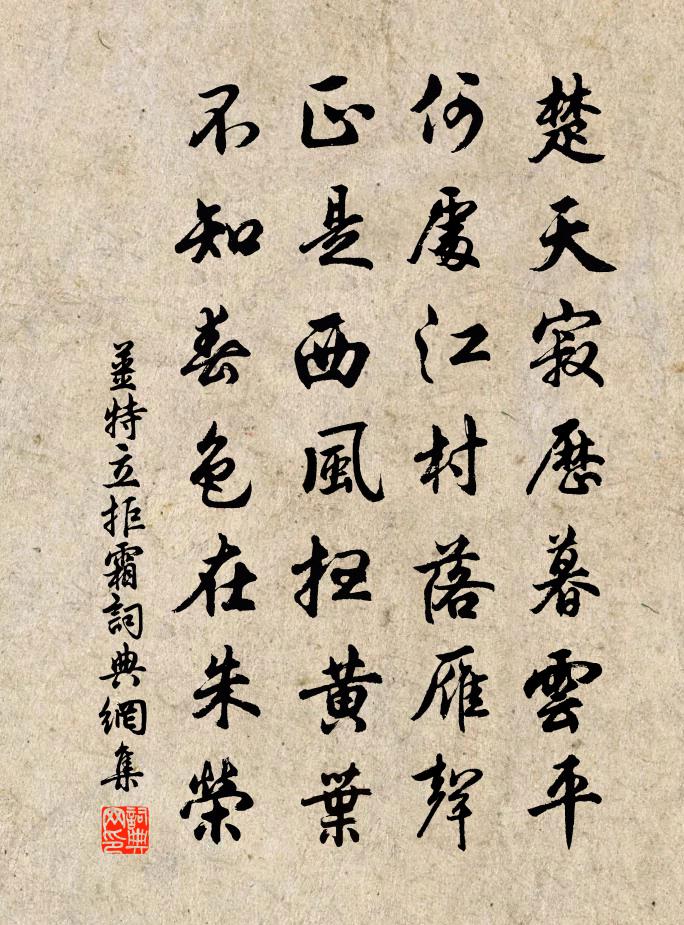 楚天寂歷暮雲平
何處江村落雁聲
正是西風掃黃葉
不知春色在朱榮
姜特立拒霜詞典網集
詞典网印